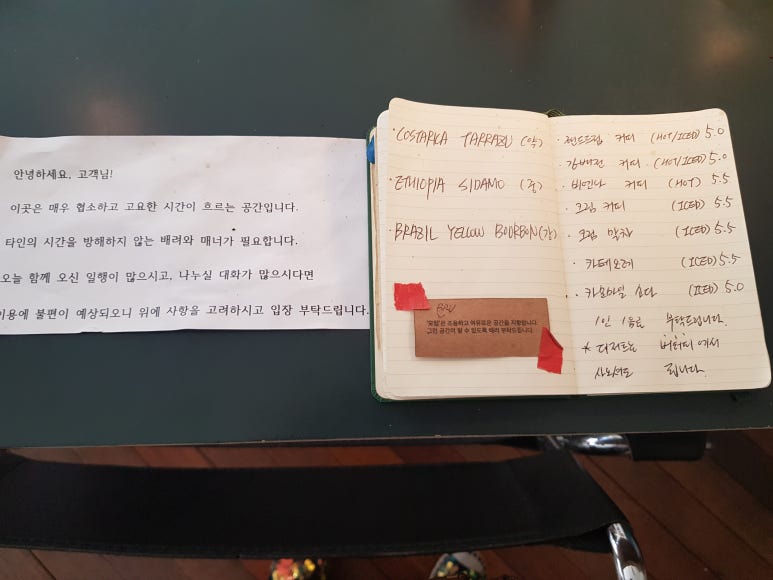 안녕하세요, 고객님!
이곳은 매우 협소하고 고요한 시간이 흐르는 공간입니다.
타인의 시간을 방해하지 않는 배려와 매너가 필요합니다.
오늘 함께 오신 일행이 많으시고, 나누실 대화가 많으시다면
이용에 불편이 예상되오니 위에 사항을 고려하시고 입장 부탁드립니다.
· COSTARICA TARRAZU (약)
· ETHIOPIA SIDAMO (중)
· BRAZIL YELLOW BOURBON (강)
조용하고 여유로운 공간을 지향합니다.
그런 공간이 될 수 있도록 배려 부탁드립니다.
· 핸드드립 커피 (HOT/ICED) 5.0
커피 (HOT/ICED) 5.0
· 비엔나 커피 (HOT) 5.5
· 크림 커피 (ICED) 5.5
· 크림 말차 (ICED) 5.5
· 카페오레 (ICED) 5.5
· 카모마일 소다 (ICED) 5.0
1인 1음료 부탁드립니다.
* 디저트는 에서
사오셔도 됩니다.